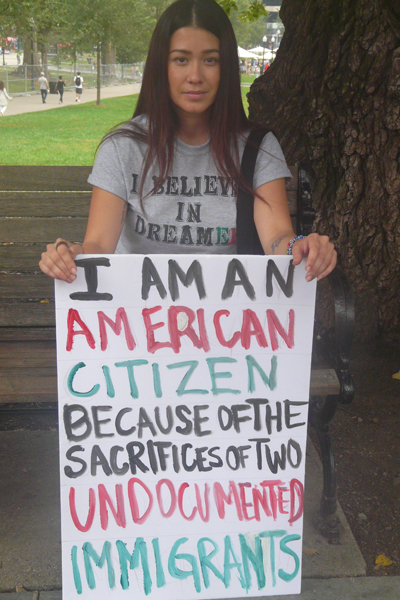 I BELIEVE
IN
DREAMERS
I AM AN
AMERICAN
CITIZEN
BECAUSE OF THE
SACRIFICES OF TWO
UNDOCUMENTED
IMMIGRANTS